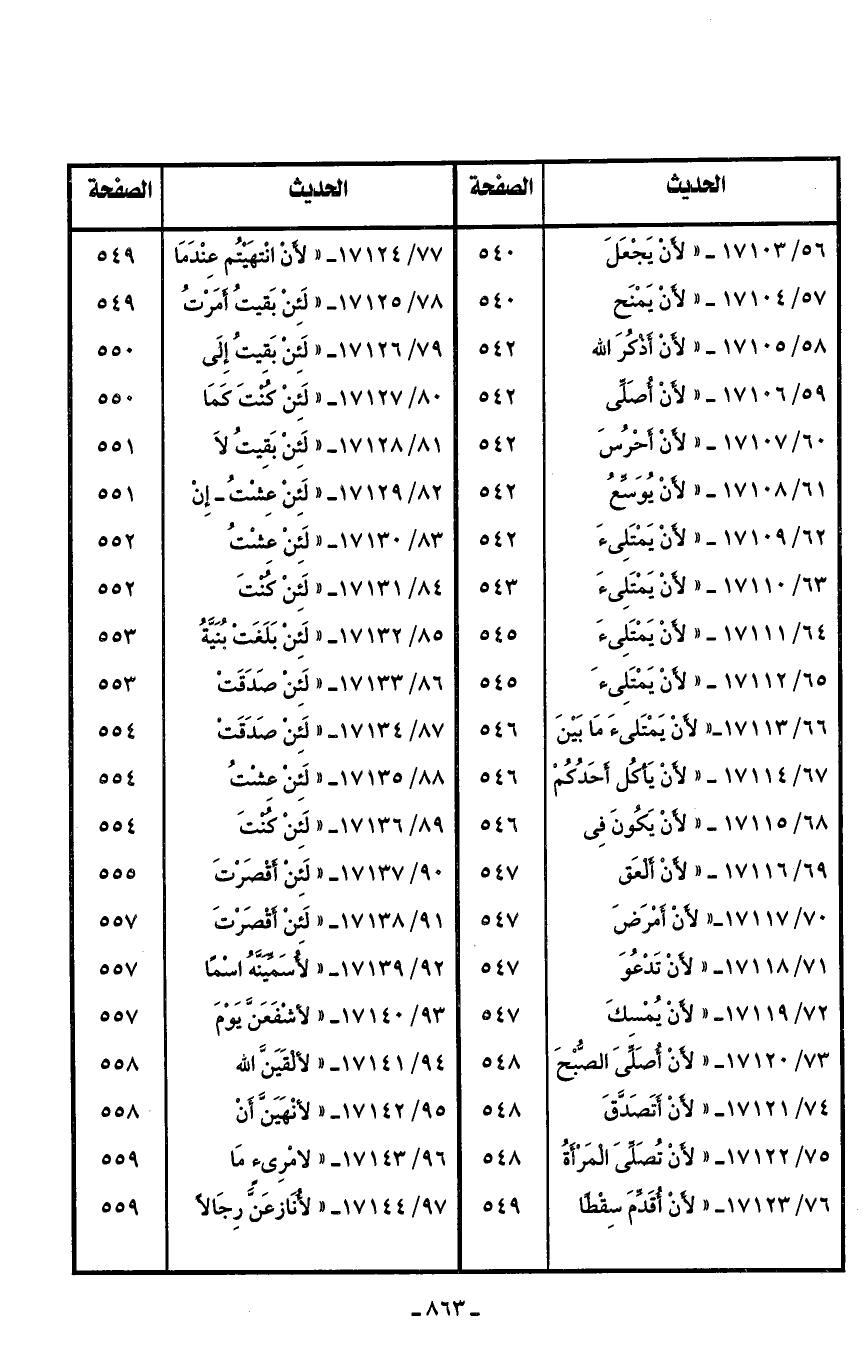 الحديث الصفحة الحديث الصفحة
١٧١٠٣/٥٦ ـ « لأَنْ يَجْعَلَ ٥٤٠ ١٧١٢٤/٧٧ـ « لأَنْ انْتهَيْتُم عِنْدَمَا ٥٤٩
١٧١٠٤/٥٧ ـ « لأَنْ يَمْنَح ٥٤٠ ١٧١٢٥/٧٨ـ « لَئِنْ بَقيتُ أَمَرْتُ ٥٤٩
١٧١٠٥/٥٨ ـ « لأَنْ أَذْكُرَ الله ٥٤٢ ١٧١٢٦/٧٩ـ « لَئِنْ بَقِيتُ إِلَى ٥٥٠
١٧١٠٦/٥٩ ـ « لأَنْ أُصَلِّى ٥٤٢ ١٧١٢٧/٨٠ـ « لَئِنْ كُنْتَ كَمَا ٥٥٠
١٧١٠٧/٦٠ ـ « لأَنْ أَحْرُسَ ٥٤٢ ١٧١٢٨/٨١ـ « لَئِنْ بَقِيتُ لاَ ٥٥١
١٧١٠٨/٦١ ـ « لأَنْ يُوَسِّعُ ٥٤٢ ١٧١٢٩/٨٢ـ « لَئِنْ عِشْتُ ـ إِنْ ٥٥١
١٧١٠٩/٦٢ ـ « لأَنْ يَمْتَلِىءَ ٥٤٢ ١٧١٣٠/٨٣ـ « لَئِنْ عِشْتُ ٥٥٢
١٧١١٠/٦٣ ـ « لأَنْ يَمْتَلِىءَ ٥٤٣ ١٧١٣١/٨٤ـ « لَئِنْ كُنْتَ ٥٥٢
١٧١١١/٦٤ ـ « لأَنْ يَمْتَلِىءَ ٥٤٥ ١٧١٣٢/٨٥ـ « لَئِنْ بَلَغَتْ بُنَيَّةُ ٥٥٣
١٧١١٢/٦٥ ـ « لأَنْ يَمْتَلِىءَ ٥٤٥ ١٧١٣٣/٨٦ـ « لَئِنْ صَدَقَتْ ٥٥٣
١٧١١٣/٦٦ـ« لأَنْ يَمْتَلىءَ مَا بَيْنَ ٥٤٦ ١٧١٣٤/٨٧ـ « لَئِنْ صَدَقَتْ ٥٥٤
١٧١١٤/٦٧ ـ « لأَنْ يَأكُل أَحَدُكُمْ ٥٤٦ ١٧١٣٥/٨٨ـ « لَئِنْ عِشْتُ ٥٥٤
١٧١١٥/٦٨ ـ « لأَنْ يَكُونَ فِى ٥٤٦ ١٧١٣٦/٨٩ـ « لَئِنْ كُنْتَ ٥٥٤
١٧١١٦/٦٩ ـ « لأَنْ أَلْعَق ٥٤٧ ١٧١٣٧/٩٠ـ « لَئِنْ أَقْصَرْتَ ٥٥٥
١٧١١٧/٧٠ـ« لأَنْ أَمْرَضَ ٥٤٧ ١٧١٣٨/٩١ـ « لَئِن أَقْصَرْتَ ٥٥٧
١٧١١٨/٧١ـ « لأَنْ تَدْعُوَ ٥٤٧ ١٧١٣٩/٩٢ـ « لأُسَمِّيَنَّهُ اسْمًا ٥٥٧
١٧١١٩/٧٢ـ « لأَنْ يُمْسِكَ ٥٤٧ ١٧١٤٠/٩٣ـ « لأشْفَعَنَّ يَوْمَ ٥٥٧
١٧١٢٠/٧٣ـ « لأَنْ أُصَلِّىَ الصُّبْحَ ٥٤٨ ١٧١٤١/٩٤ـ « لألْقَيَنَّ الله ٥٥٨
١٧١٢١/٧٤ـ « لأَنْ أَتَصَدَّقَ ٥٤٨ ١٧١٤٢/٩٥ـ « لأنْهَيَنَّ أَنْ ٥٥٨
١٧١٢٢/٧٥ـ « لأَنْ تُصَلِّىَ الْمَرْأَةُ ٥٤٨ ١٧١٤٣/٩٦ـ « لامْرِىءٍ مَا ٥٥٩
١٧١٢٣/٧٦ـ « لأَنْ أُقَدِّمَ سِقْطًا ٥٤٩ ١٧١٤٤/٩٧ـ « لأُنَازِعَنَّ رِجَالاً ٥٥٩
ـ ٨٦٣ ـ